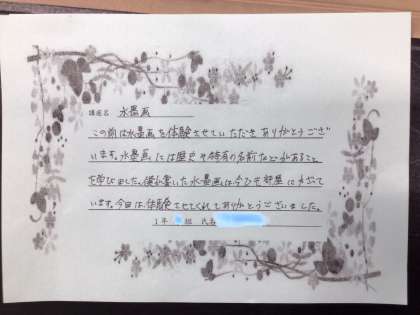 講座名 水墨画
この前は水墨画を体験させていただきありがとうござ
います。水墨画には歴史や特有の名前などがあること
を学びました。僕が書いた水墨画は今でも部屋にかざって
います。今回は体験させてくれてありがとうございました。
1年 組 氏名